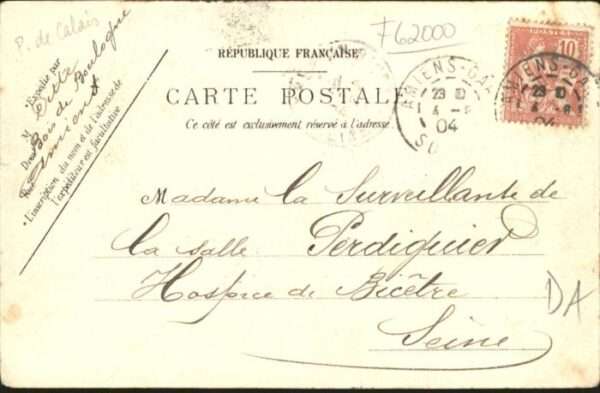 P. de Calais
F62000
RÉPUBLIQUE FRANÇAISE
CARTE POSTALE
Ce côté est exclusivement réservé à l'adresse.
M
Expédié par
Bois de Boulogne
L'inscription du nom et de l'adresse de
l'expéditeur est facultative
10
AMIENS-GA
23 10
4 -8
04
SO
AMIENS-GA
23 10
4 -8
04
Madame la Surveillante de
la salle Perdiguier
Hospice de Bicêtre
Seine
DA